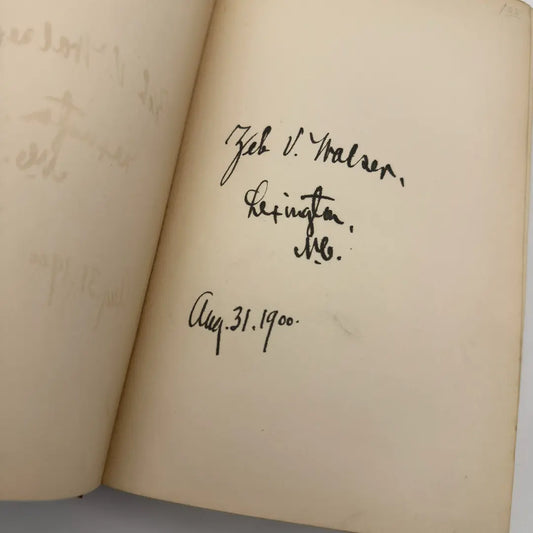 Zeb V. Walser,
Lexington,
N.C.
Aug. 31. 1900.